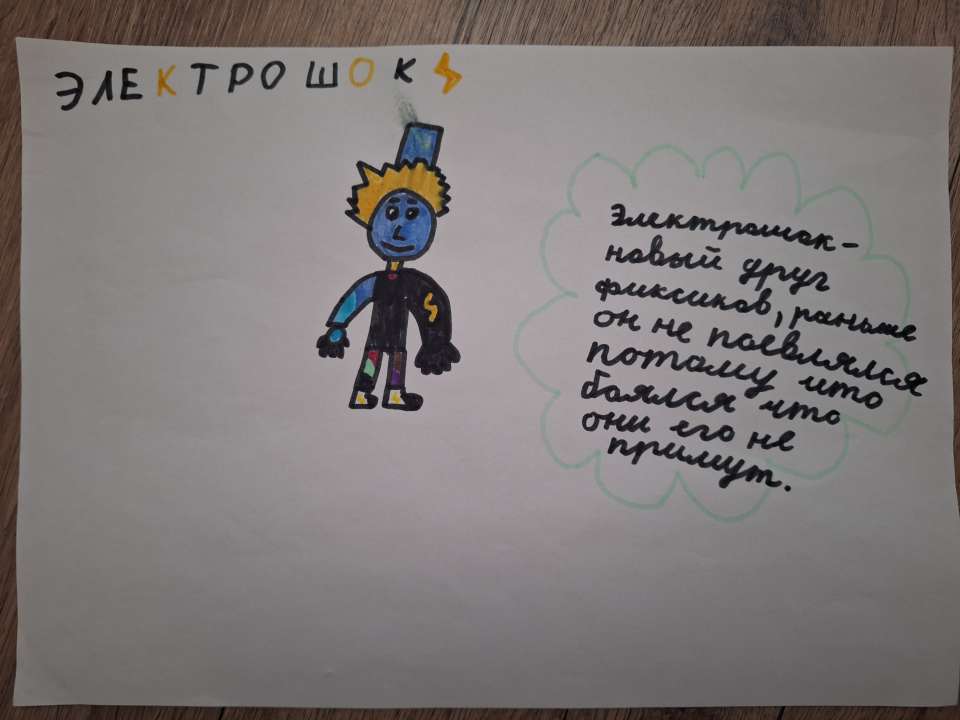 ЭЛЕКТРОШОК
Электрошок-
новый друг
фиксиков, раньше
он не поевлялся
потому што
боялся что
они его не
примут.